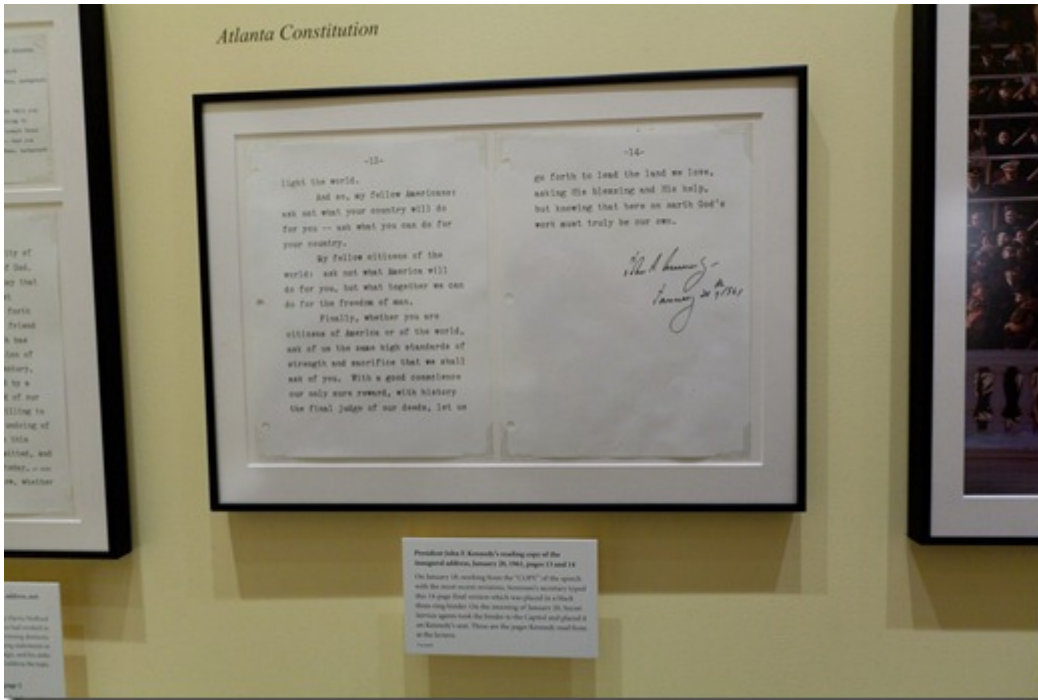 Atlanta Constitution
-13-
light the world.
And so, my fellow Americans:
ask not what your country will do
for you -- ask what you can do for
your country.
My fellow citizens of the
world: ask not what America will
do for you, but what together we can
do for the freedom of man.
Finally, whether you are
citizens of America or of the world,
ask of us the same high standards of
strength and sacrifice that we shall
ask of you. With a good conscience
our only sure reward, with history
the final judge of our deeds, let us
-14-
go forth to lead the land we love,
asking His blessing and His help,
but knowing that here on earth God's
work must truly be our own.
January 20th, 1961
President John F. Kennedy's reading copy of the
inaugural address, January 20, 1961, pages 13 and 14
On January 18, working from the "COPY" of the speech
with the most recent revisions, Sorensen's secretary typed
this 14-page final version which was placed in a black
three-ring binder. On the morning of January 20, Secret
Service agents took the binder to the Capitol and placed it
on Kennedy's seat. These are the pages Kennedy read from
at the lectern.
ity of
f God.
forth
friend
h has
t by a
d of our
illing to
undoing of
this
mitted, and
today,
whether